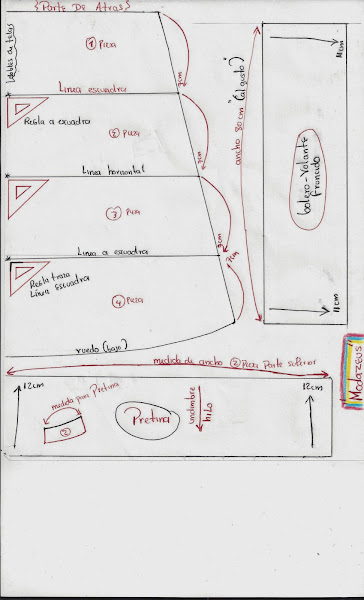 {Parte De Atras}
Idobles de telas
① Pieza
7cm
Linea escuadra
Regla a escuadra
② Pieza
7cm
Linea horizontal
③ Pieza
7cm
Linea a escuadra
7cm
Regla traza
Linea escuadra
④ Pieza
ruedo (bajo)
ancho 80 cm "(al gusto)"
11cm
bolero-Volante
fruncido
11cm
Modazeus
medida de ancho ② Pieza Parte superior
12cm
12cm
medida para Pretina
②
Pretina
hilo